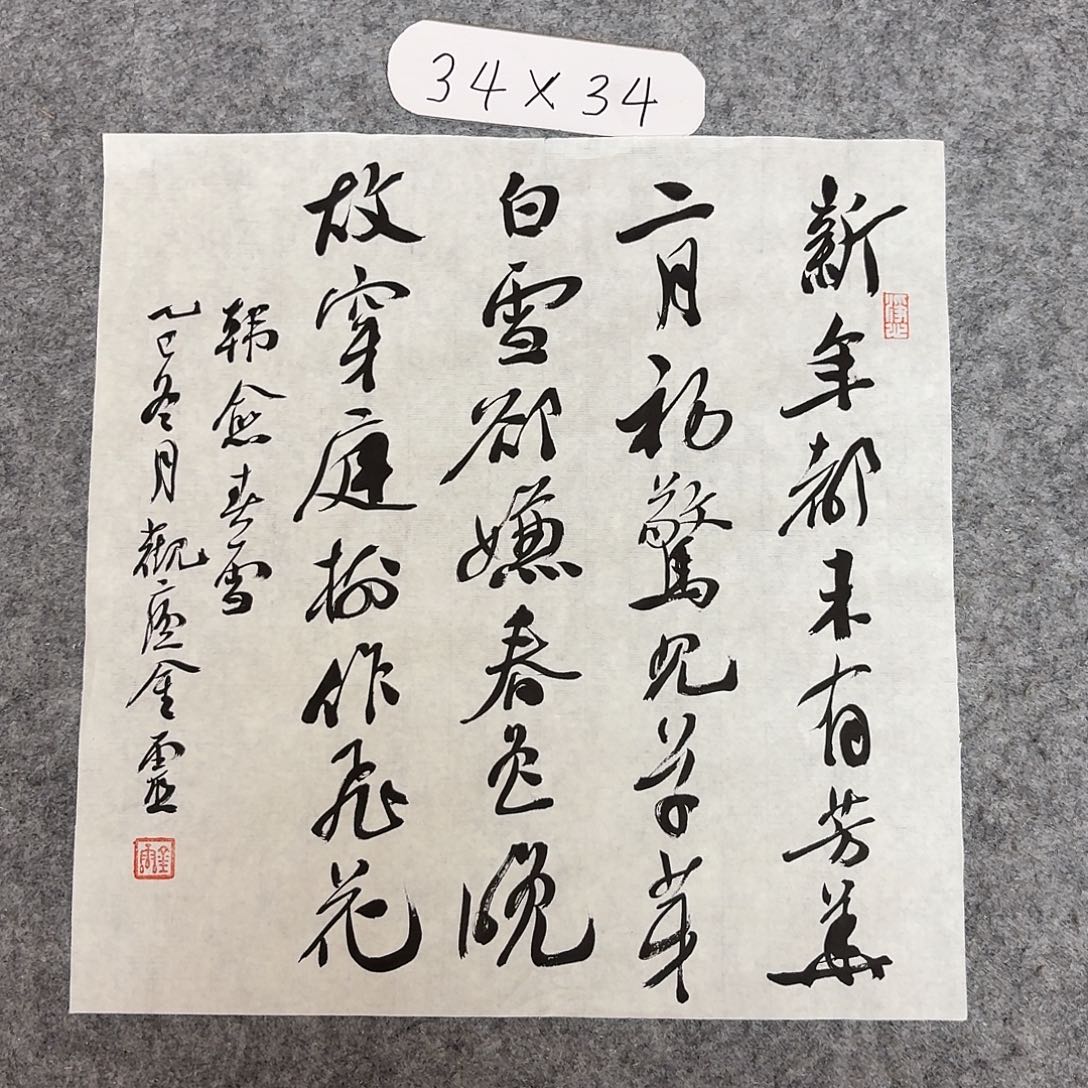 34×34
新年都未有芳華
二月初驚見草芽
白雪卻嫌春色晚
故穿庭樹作飛花
韓愈春雪
乙巳冬月觀廬金靈